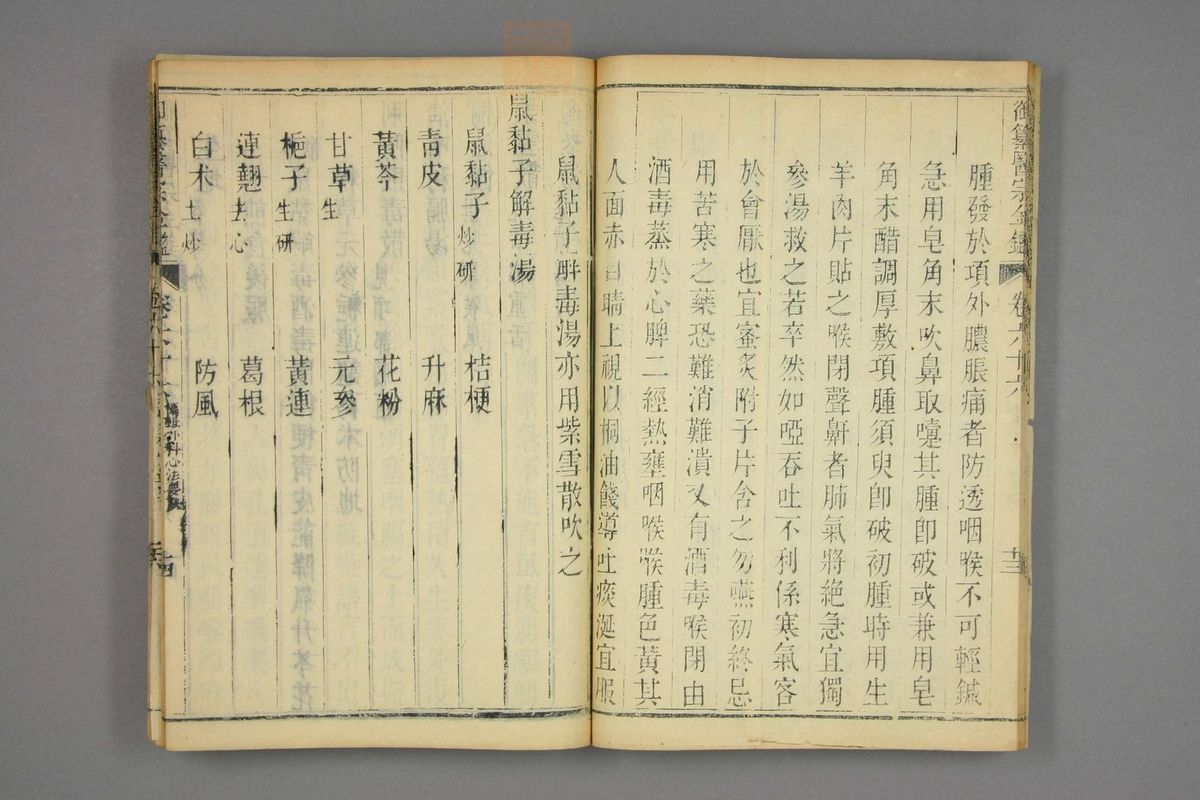 御纂醫宗金鑑 卷六十六 十三
腫發於項外膿脹痛者防透咽喉不可輕鍼
急用皂角末吹鼻取嚏其腫卽破或兼用皂
角末醋調厚敷項腫須臾卽破初腫時用生
羊肉片貼之喉閉聲鼾者肺氣將絶急宜獨
參湯救之若卒然如啞吞吐不利係寒氣客
於會厭也宜蜜炙附子片含之勿嚥初終忌
用苦寒之藥恐難消難潰又有酒毒喉閉由
酒毒蒸於心脾二經熱壅咽喉喉腫色黃其
人面赤目睛上視以桐油餞導吐痰涎宜服
鼠黏子解毒湯亦用紫雪散吹之
鼠黏子解毒湯
鼠黏子炒研 桔梗
靑皮 升麻
黃芩 花粉
甘草生 元參
梔子生研 黃連
連翹去心 葛根
白术土炒 防風
御纂醫宗金鑑 卷六十六 編輯外科心法要訣 十四